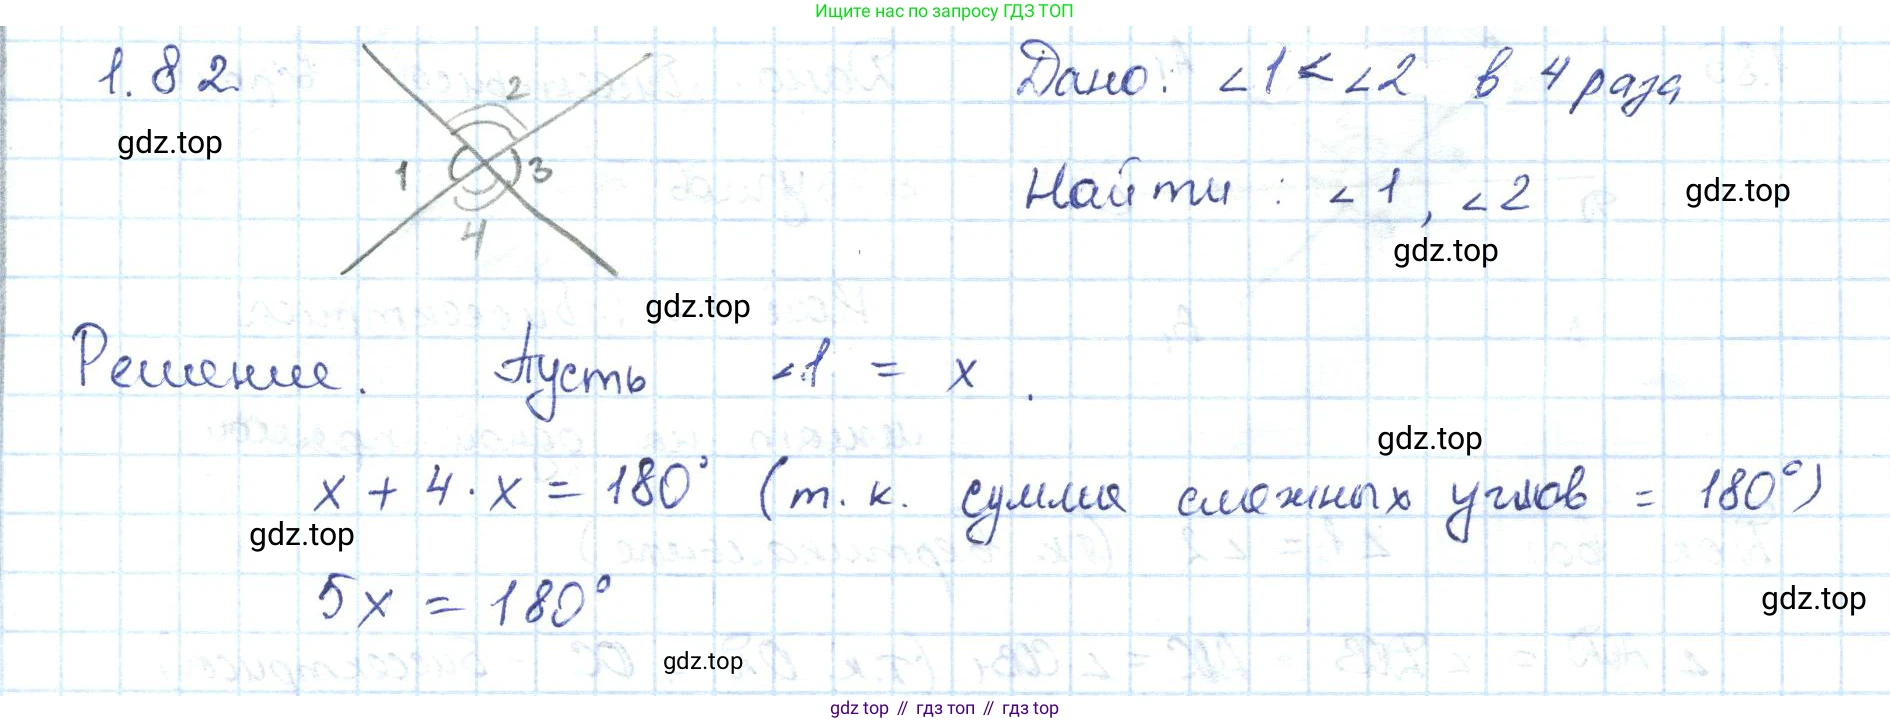 Ищите нас по запросу ГДЗ ТОП
1.82.
gdz.top
2
1
3
4
Дано: ∠1 < ∠2 в 4 раза
Найти: ∠1, ∠2
gdz.top
gdz.top
gdz.top
Решение. Пусть ∠1 = x.
gdz.top
x + 4 · x = 180° (т. к. сумма смежных углов = 180°)
gdz.top
5x = 180°
gdz.top
gdz.top
gdz top // гдз топ // гдз top